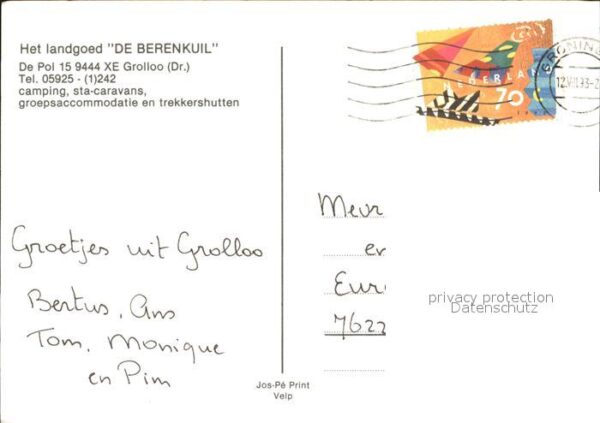 Het landgoed "DE BERENKUIL"
De Pol 15 9444 XE Grolloo (Dr.)
Tel. 05925 - (1)242
camping, sta-caravans,
groepsaccommodatie en trekkershutten
NEDERLAND
70
GRONING
12.VII.93-2
Groetjes uit Grolloo
Bertus, Ans
Tom, Monique
en Pim
Mevr
en
Eur
7622
privacy protection
Datenschutz
Jos-Pé Print
Velp